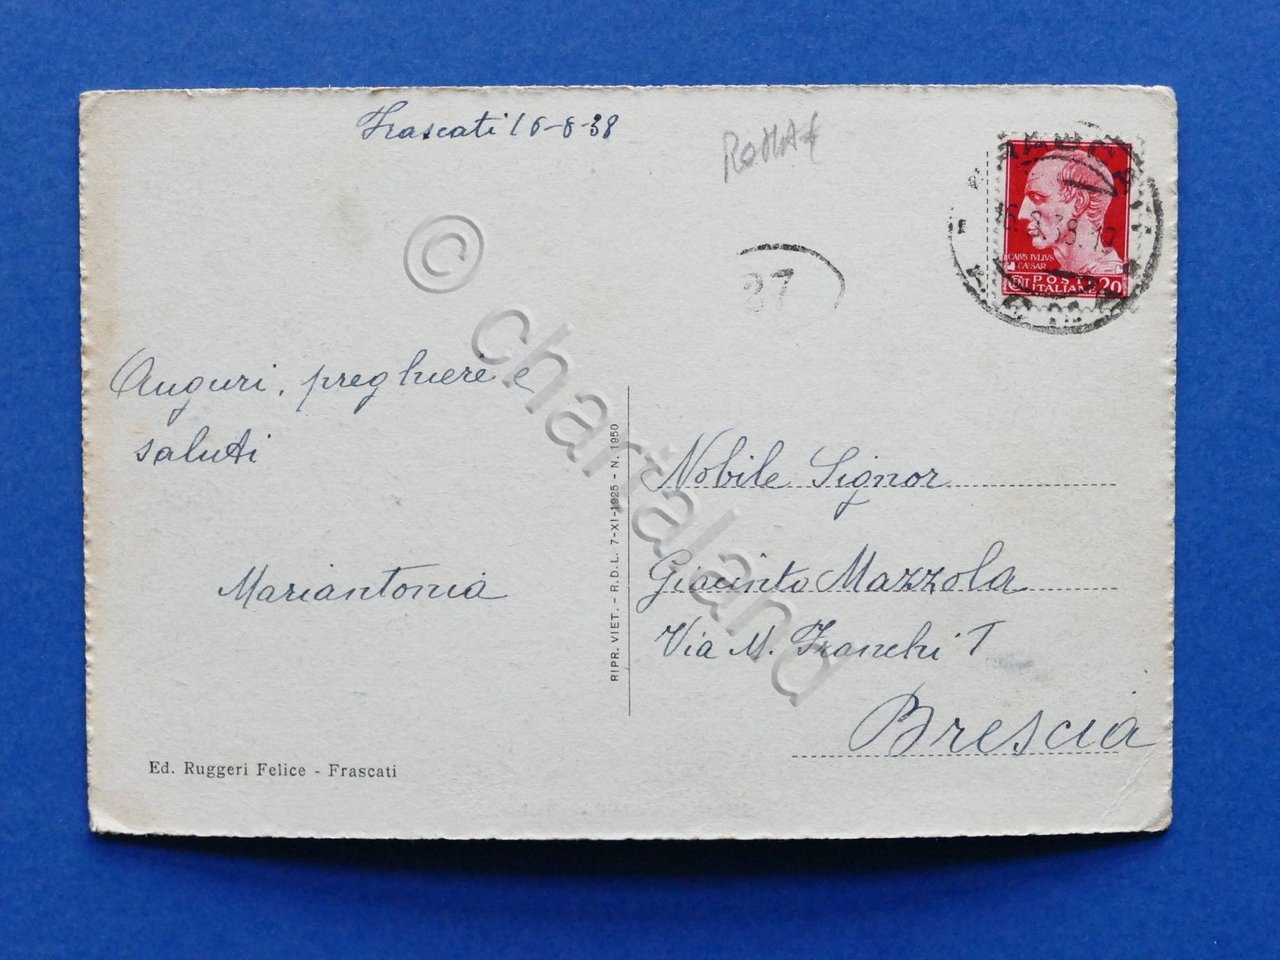 Frascati 16-8-38
ROMA
27
16.8.38.19
CAIVS IVLIVS
CAESAR
POSTE
ITALIANE
20
Auguri, preghiere e
saluti
Mariantonia
Nobile Signor
Giacinto Mazzola
Via M. Franchi
Brescia
RIPR. VIET. - R.D.L. 7-XI-1925 - N. 1950
Ed. Ruggeri Felice - Frascati
© chartaland